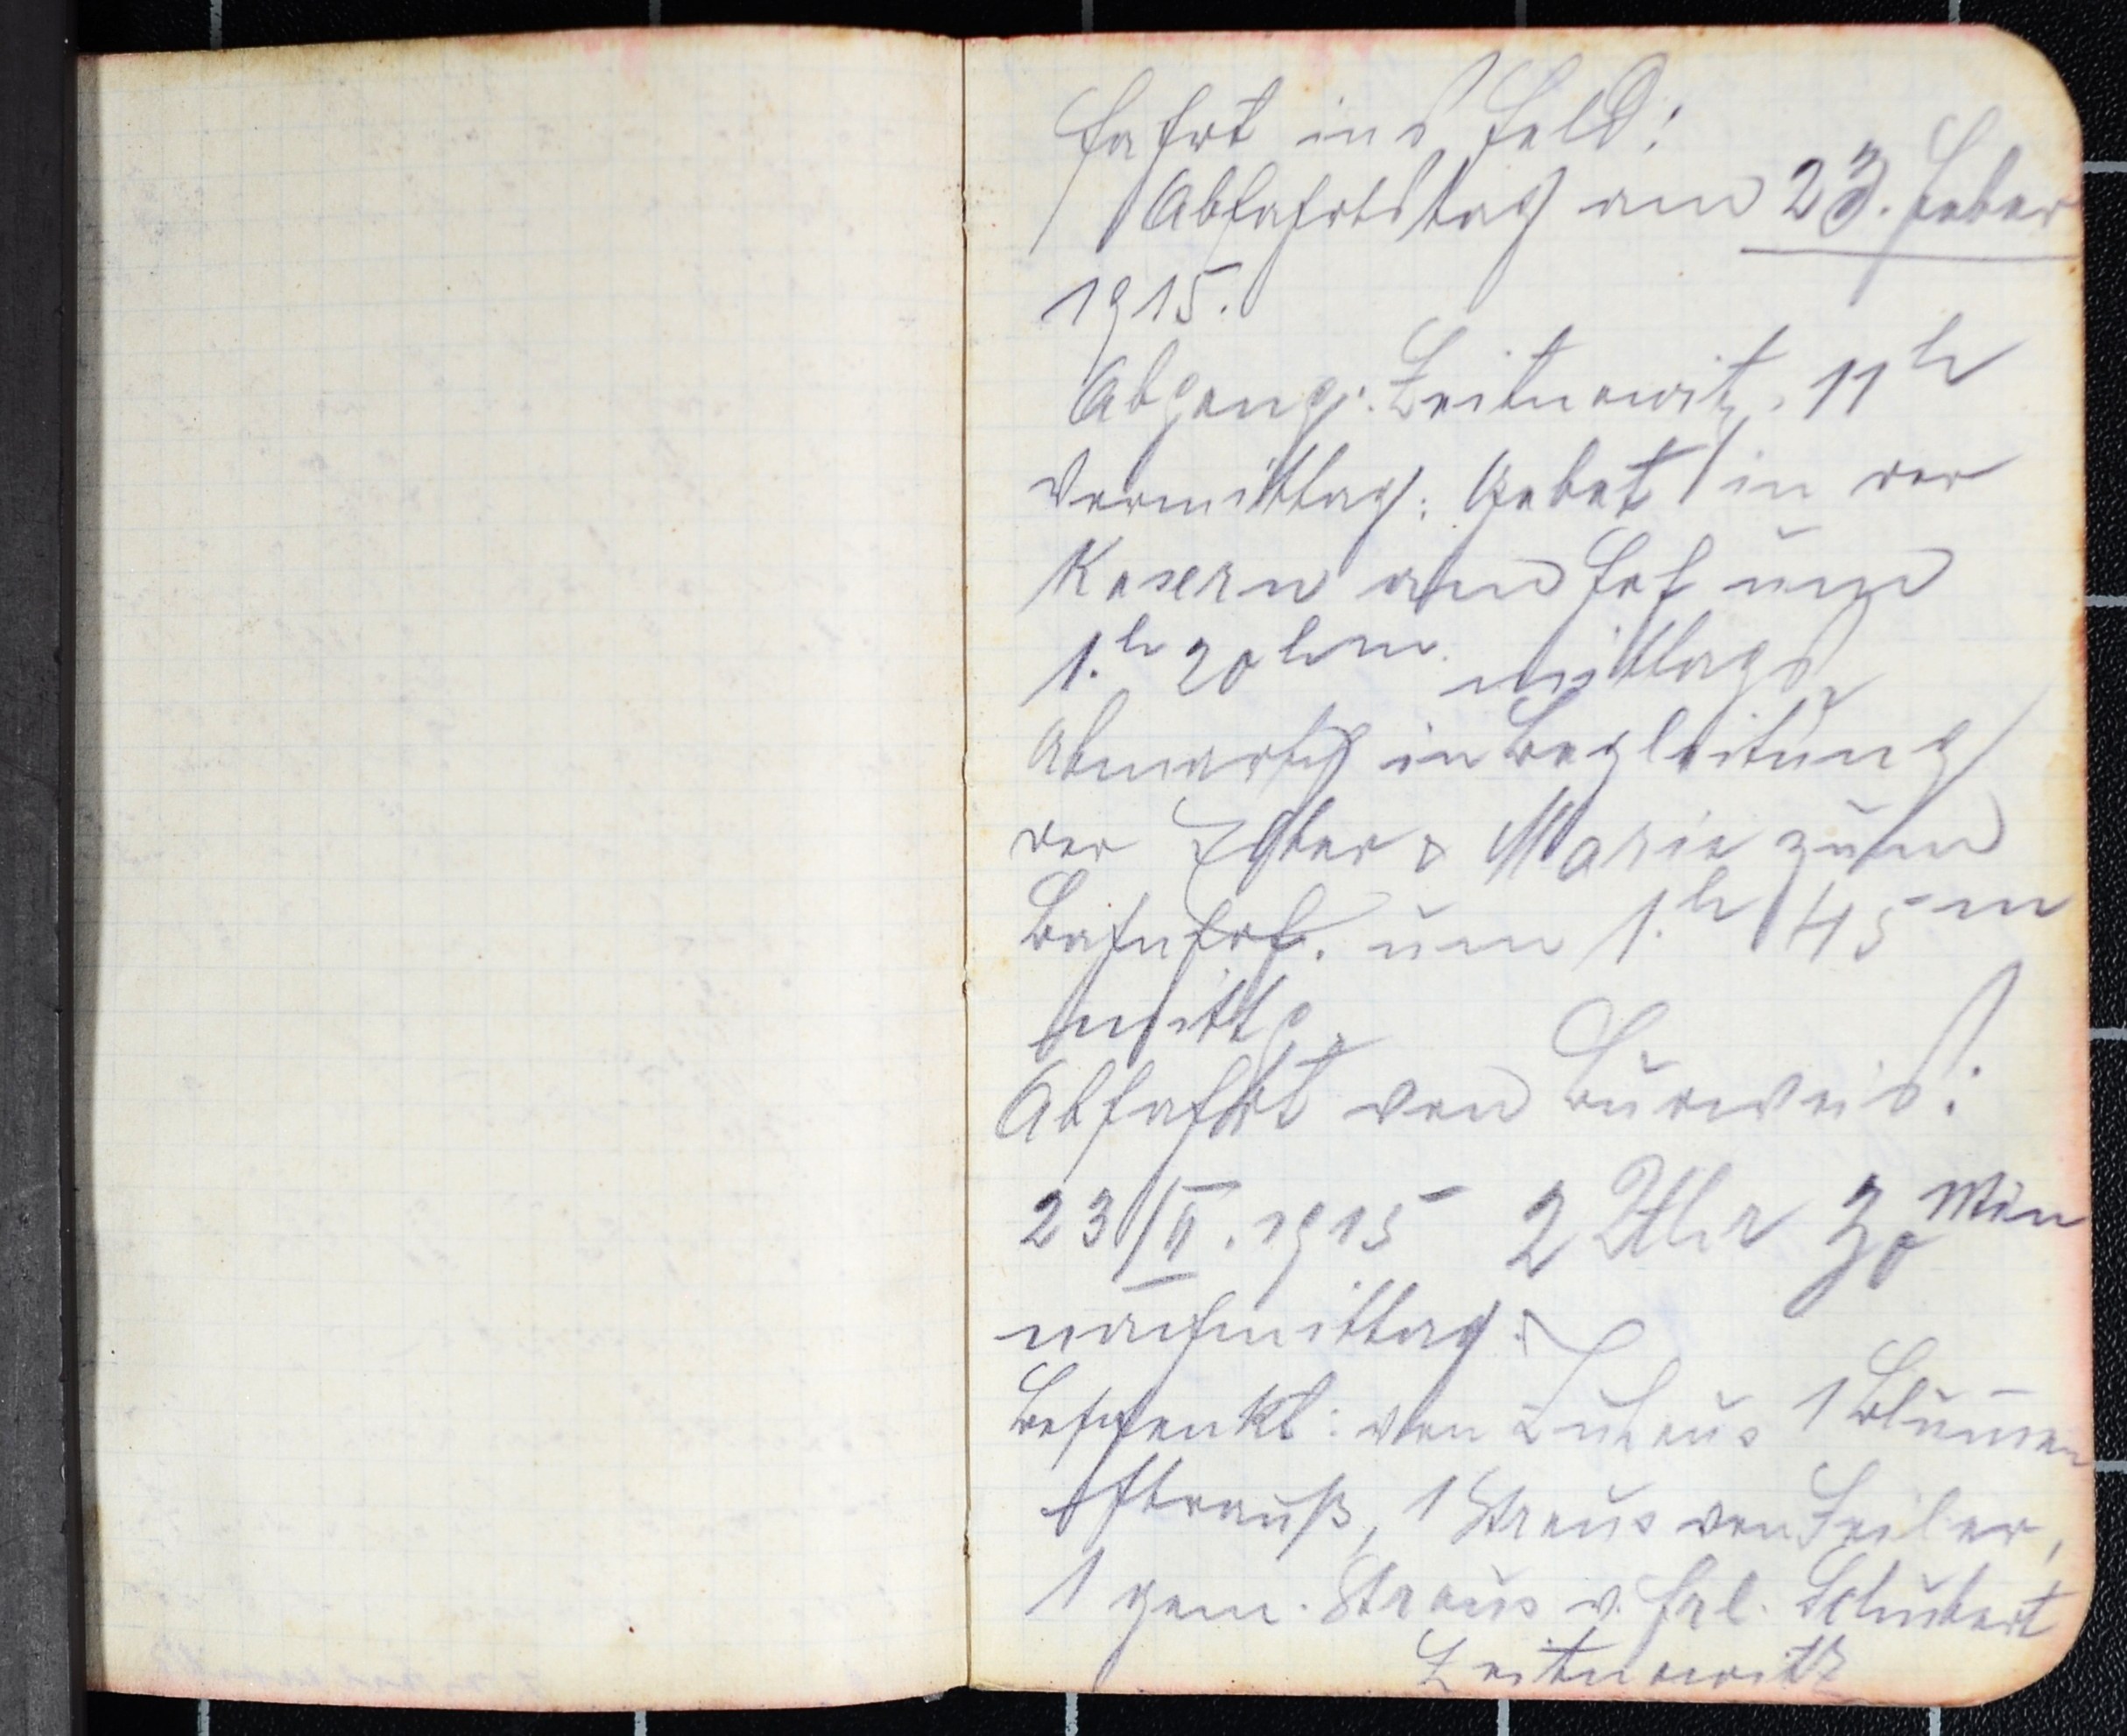 Fahrt ins Feld!
Abfahrtstag am 23. Feber
1915.
Abgang: Leitnowitz, 11h
Vormittag: Gebet in der
Kasern am Hof um
1.h 20 mittags
Abmarsch in Begleitung
der & Marie zum
Bahnhof. um 1.h 45 m
mittg.
Abfahrt von Budweis:
23/II. 1915 2 Uhr 30 Min
nachmittag.
Beschenkt: von 1 Blumen
strauß, 1 Straus von Seiler,
1 gem. Straus v. Frl. Schubert
Leitnowitz